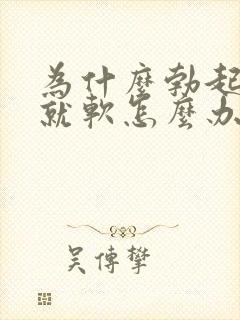 為什麼勃起
就軟怎麼办
吴傳攀